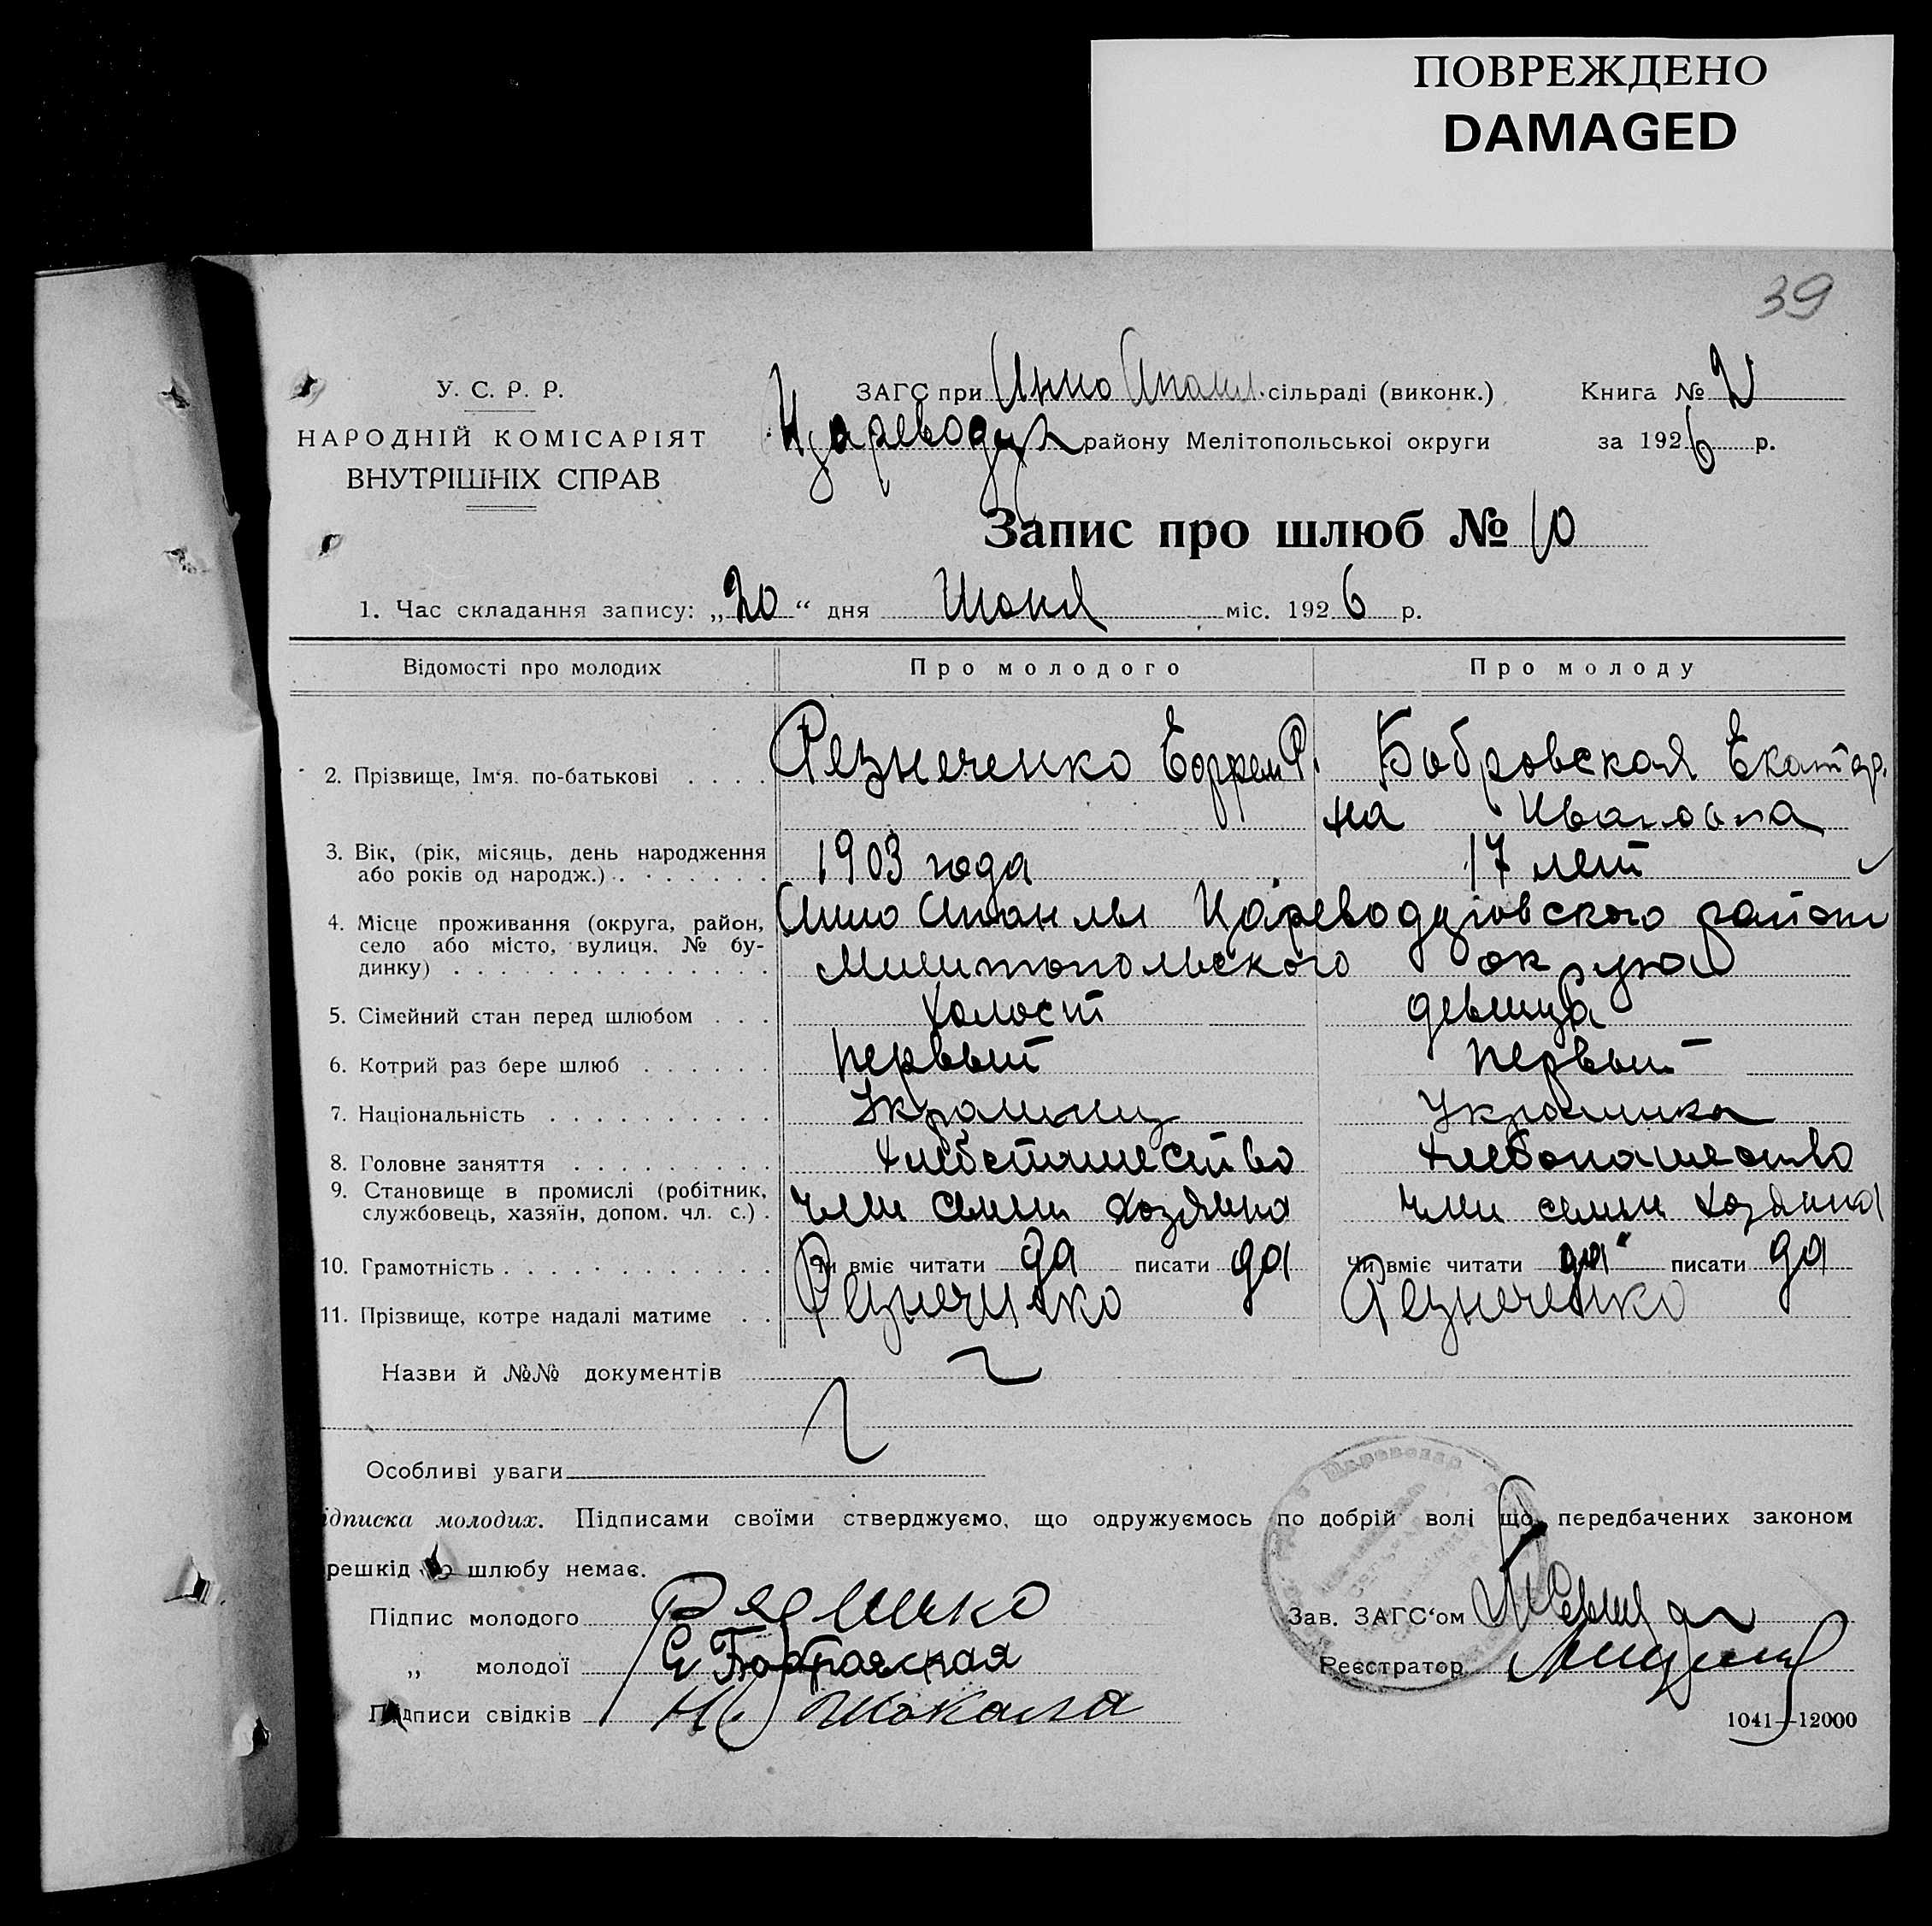 ПОВРЕЖДЕНО
DAMAGED
39
У. С. Р. Р.
НАРОДНІЙ КОМІСАРІЯТ
ВНУТРІШНІХ СПРАВ
ЗАГС при Анно сільраді (виконк.)
Цареводар району Мелітопольської округи
Книга № 2
за 1926 р.
Запис про шлюб № 10
1. Час складання запису: „20“ дня Июня міс. 1926 р.
Відомості про молодих
Про молодого
Про молоду
2. Прізвище, Ім‘я. по-батькові
Резнеченко Ефрем Р.
Бобровская Екатер.
на Ивановна
3. Вік, (рік, місяць, день народження
або років од народж.)
1903 года
17 лет
4. Місце проживання (округа, район,
село або місто, вулиця, № бу-
динку)
Анно Цареводаровского район
Милитопольского округа
5. Сімейний стан перед шлюбом
Холост
девица
6. Котрий раз бере шлюб
первый
первый
7. Національність
Украинец
Украинка
8. Головне заняття
хлебопашество
9. Становище в промислі (робітник,
службовець, хазяїн, допом. чл. с.)
член семьи хозяина
член семьи хозяина
10. Грамотність
Чи вміє читати да писати да
Чи вміє читати да писати да
11. Прізвище, котре надалі матиме
Резнеченко
Резнеченко
Назви й №№ документів
Особливі уваги
ідписка молодих. Підписами своїми стверджуємо, що одружуємось по добрій волі що передбачених законом
решкід до шлюбу немає.
Підпис молодого
Зав. ЗАГС‘ом
„ молодої Е Бобровская
Реєстратор
Підписи свідків
1041—12000